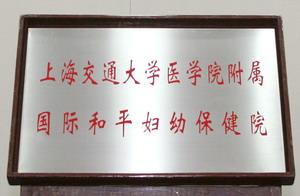 上海交通大学医学院附属
国际和平妇幼保健院